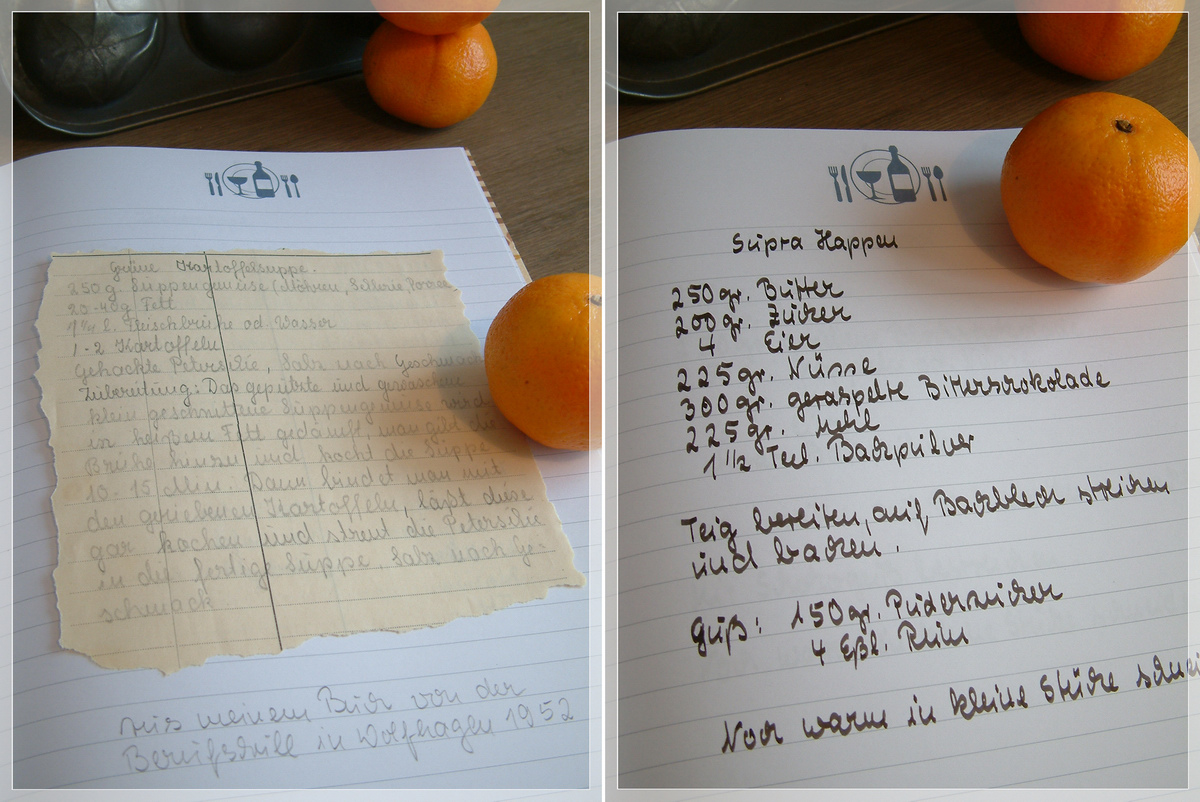 Grüne Kartoffelsuppe.
250 g Suppengemüse (Möhren, Sellerie, Porree
20-40g Fett
1 1/4 l. Fleischbrühe od. Wasser
1-2 Kartoffeln
gehackte Petersilie, Salz nach Geschmack
Zubereitung: Das geputzte und gewaschene
klein geschnittene Suppengemüse wird
in heißem Fett gedämpft, man gibt die
Brühe hinzu und kocht die Suppe
10-15 Min. Dann bindet man mit
den geriebenen Kartoffeln, läßt diese
gar kochen und streut die Petersilie
in die fertige Suppe, Salz nach Ge-
schmack
Aus meinem Buch von der
Berufsschule in Wolfhagen 1952
Supra Happen
250 gr. Butter
200 gr. Zucker
4 Eier
225 gr. Nüsse
300 gr. geraspelte Bitterschokolade
225 gr. Mehl
1 1/2 Teel. Backpulver
Teig bereiten, auf Backblech streichen
und backen.
Guß: 150 gr. Puderzucker
4 Eßl. Rum
Noch warm in kleine Stücke schnei